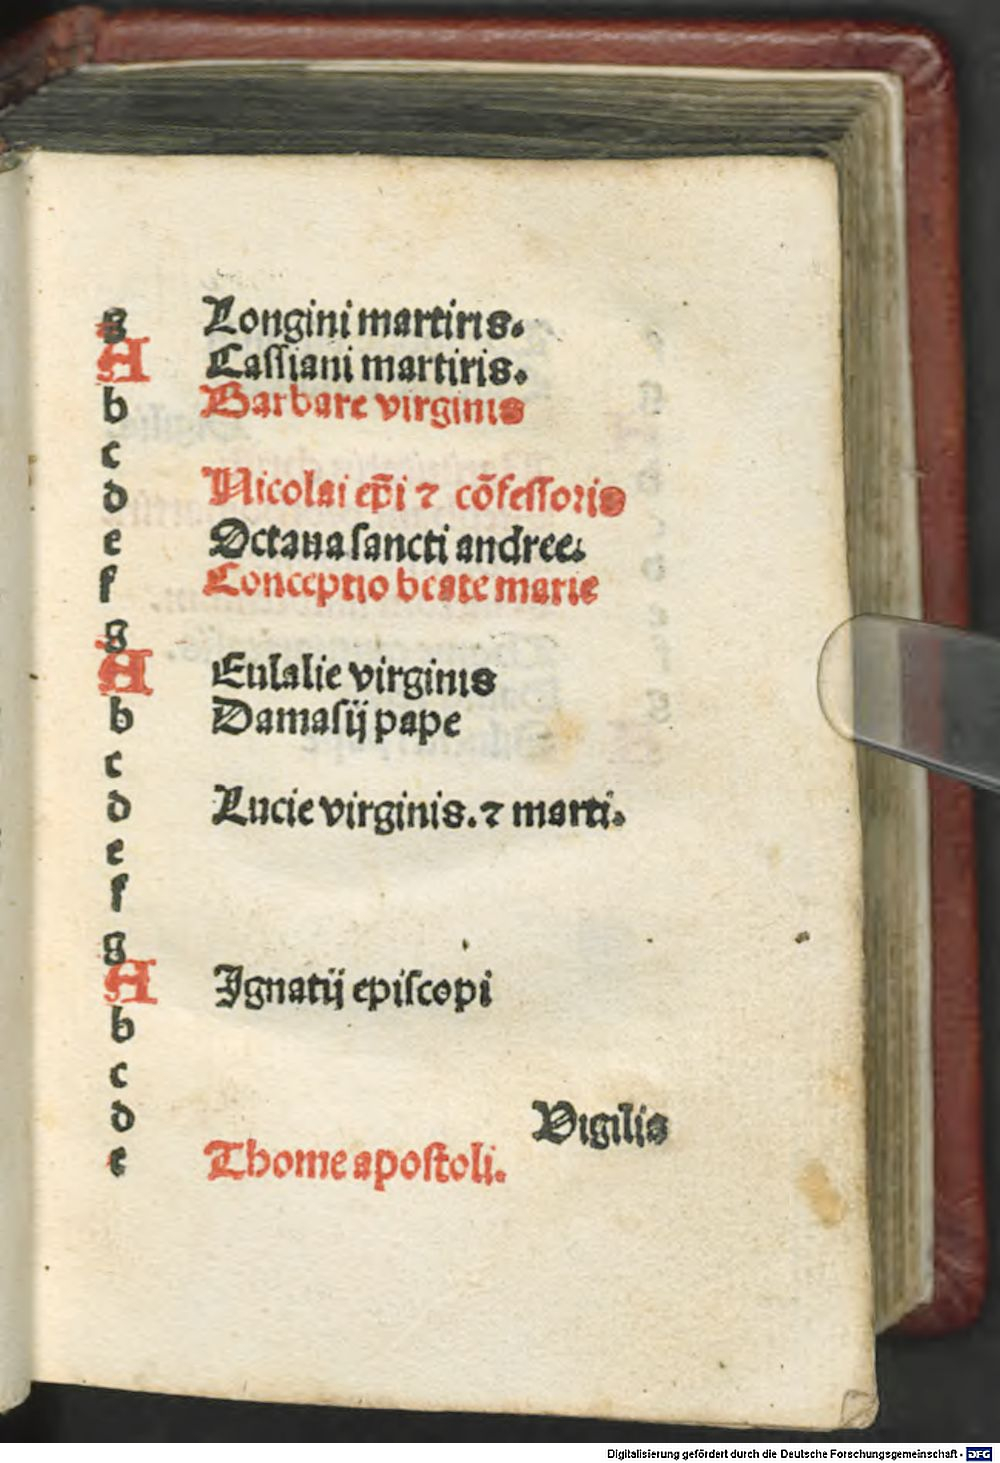 g Longini martiris.
A Cassiani martiris.
b Barbare virginis
c
d Nicolai ep̄i ⁊ cōfessoris
e Octaua sancti andree.
f Conceptio beate marie
g
A Eulalie virginis
b Damasij pape
c
d Lucie virginis. ⁊ marti.
e
f
g
A Ignatij episcopi
b
c
d Vigilia
e Thome apostoli.
Digitalisierung gefördert durch die Deutsche Forschungsgemeinschaft - DFG